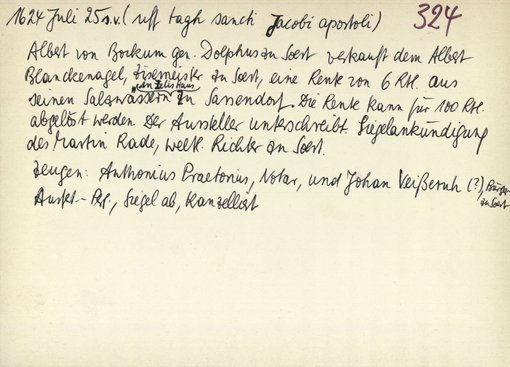 1624 Juli 25 s.v. (uff tagh sancti Jacobi apostoli) 324
Albert von Bockum gen. Dolphus zu Soest verkauft dem Albert
Blanckenagel, Zisemeister zu Soest, eine Rente von 6 Rtl. aus
Haus
seinen Salzwassern zu Sassendorf. Die Rente kann für 100 Rtl.
abgelöst werden. Der Aussteller unterschreibt. Siegelankündigung
des Martin Rade, weltl. Richter zu Soest.
Zeugen: Anthonius Praetorius, Notar, und Johan Veißeruh (?), Bürger zu Soest
Ausf.- Pg., Siegel ab, Kanzellost